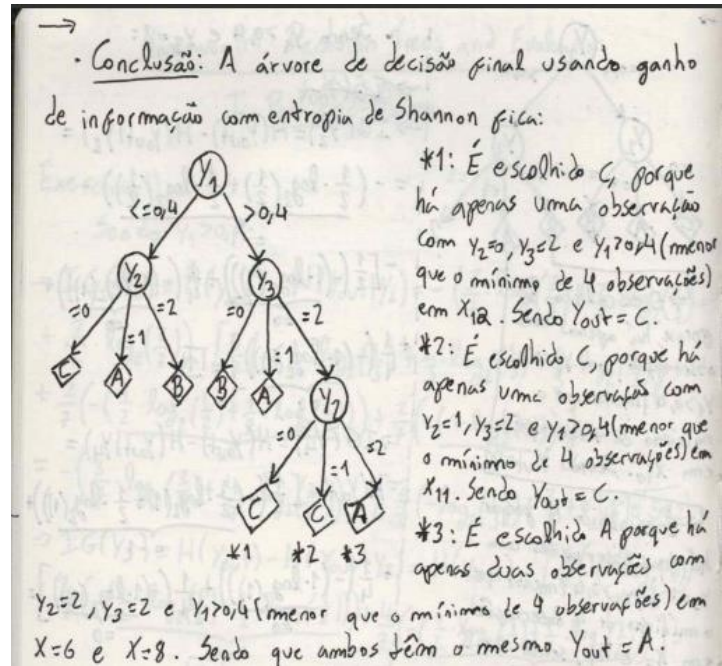 →
· Conclusão: A árvore de decisão final usando ganho
de informação com entropia de Shannon fica:
Y1
<=0,4 >0,4
Y2 Y3
=0 =1 =2 =0 =1 =2
C A B B A Y2
=0 =1 =2
C C A
*1 *2 *3
*1: É escolhido C, porque
há apenas uma observação
com Y2=0, Y3=2 e Y1>0,4 (menor
que o mínimo de 4 observações)
em X12. Sendo Yout = C.
*2: É escolhido C, porque há
apenas uma observação com
Y2=1, Y3=2 e Y1>0,4 (menor que
o mínimo de 4 observações) em
X11. Sendo Yout = C.
*3: É escolhido A porque há
apenas duas observações com
Y2=2, Y3=2 e Y1>0,4 (menor que o mínimo de 4 observações) em
X=6 e X=8. Sendo que ambos têm o mesmo Yout = A.